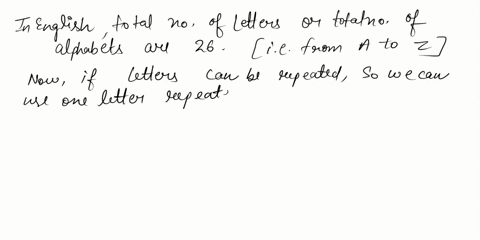 In English, total no. of letters or total no. of
alphabets are 26. [i.e. from A to Z]
Now, if letters can be repeated, so we can
use one letter repeat